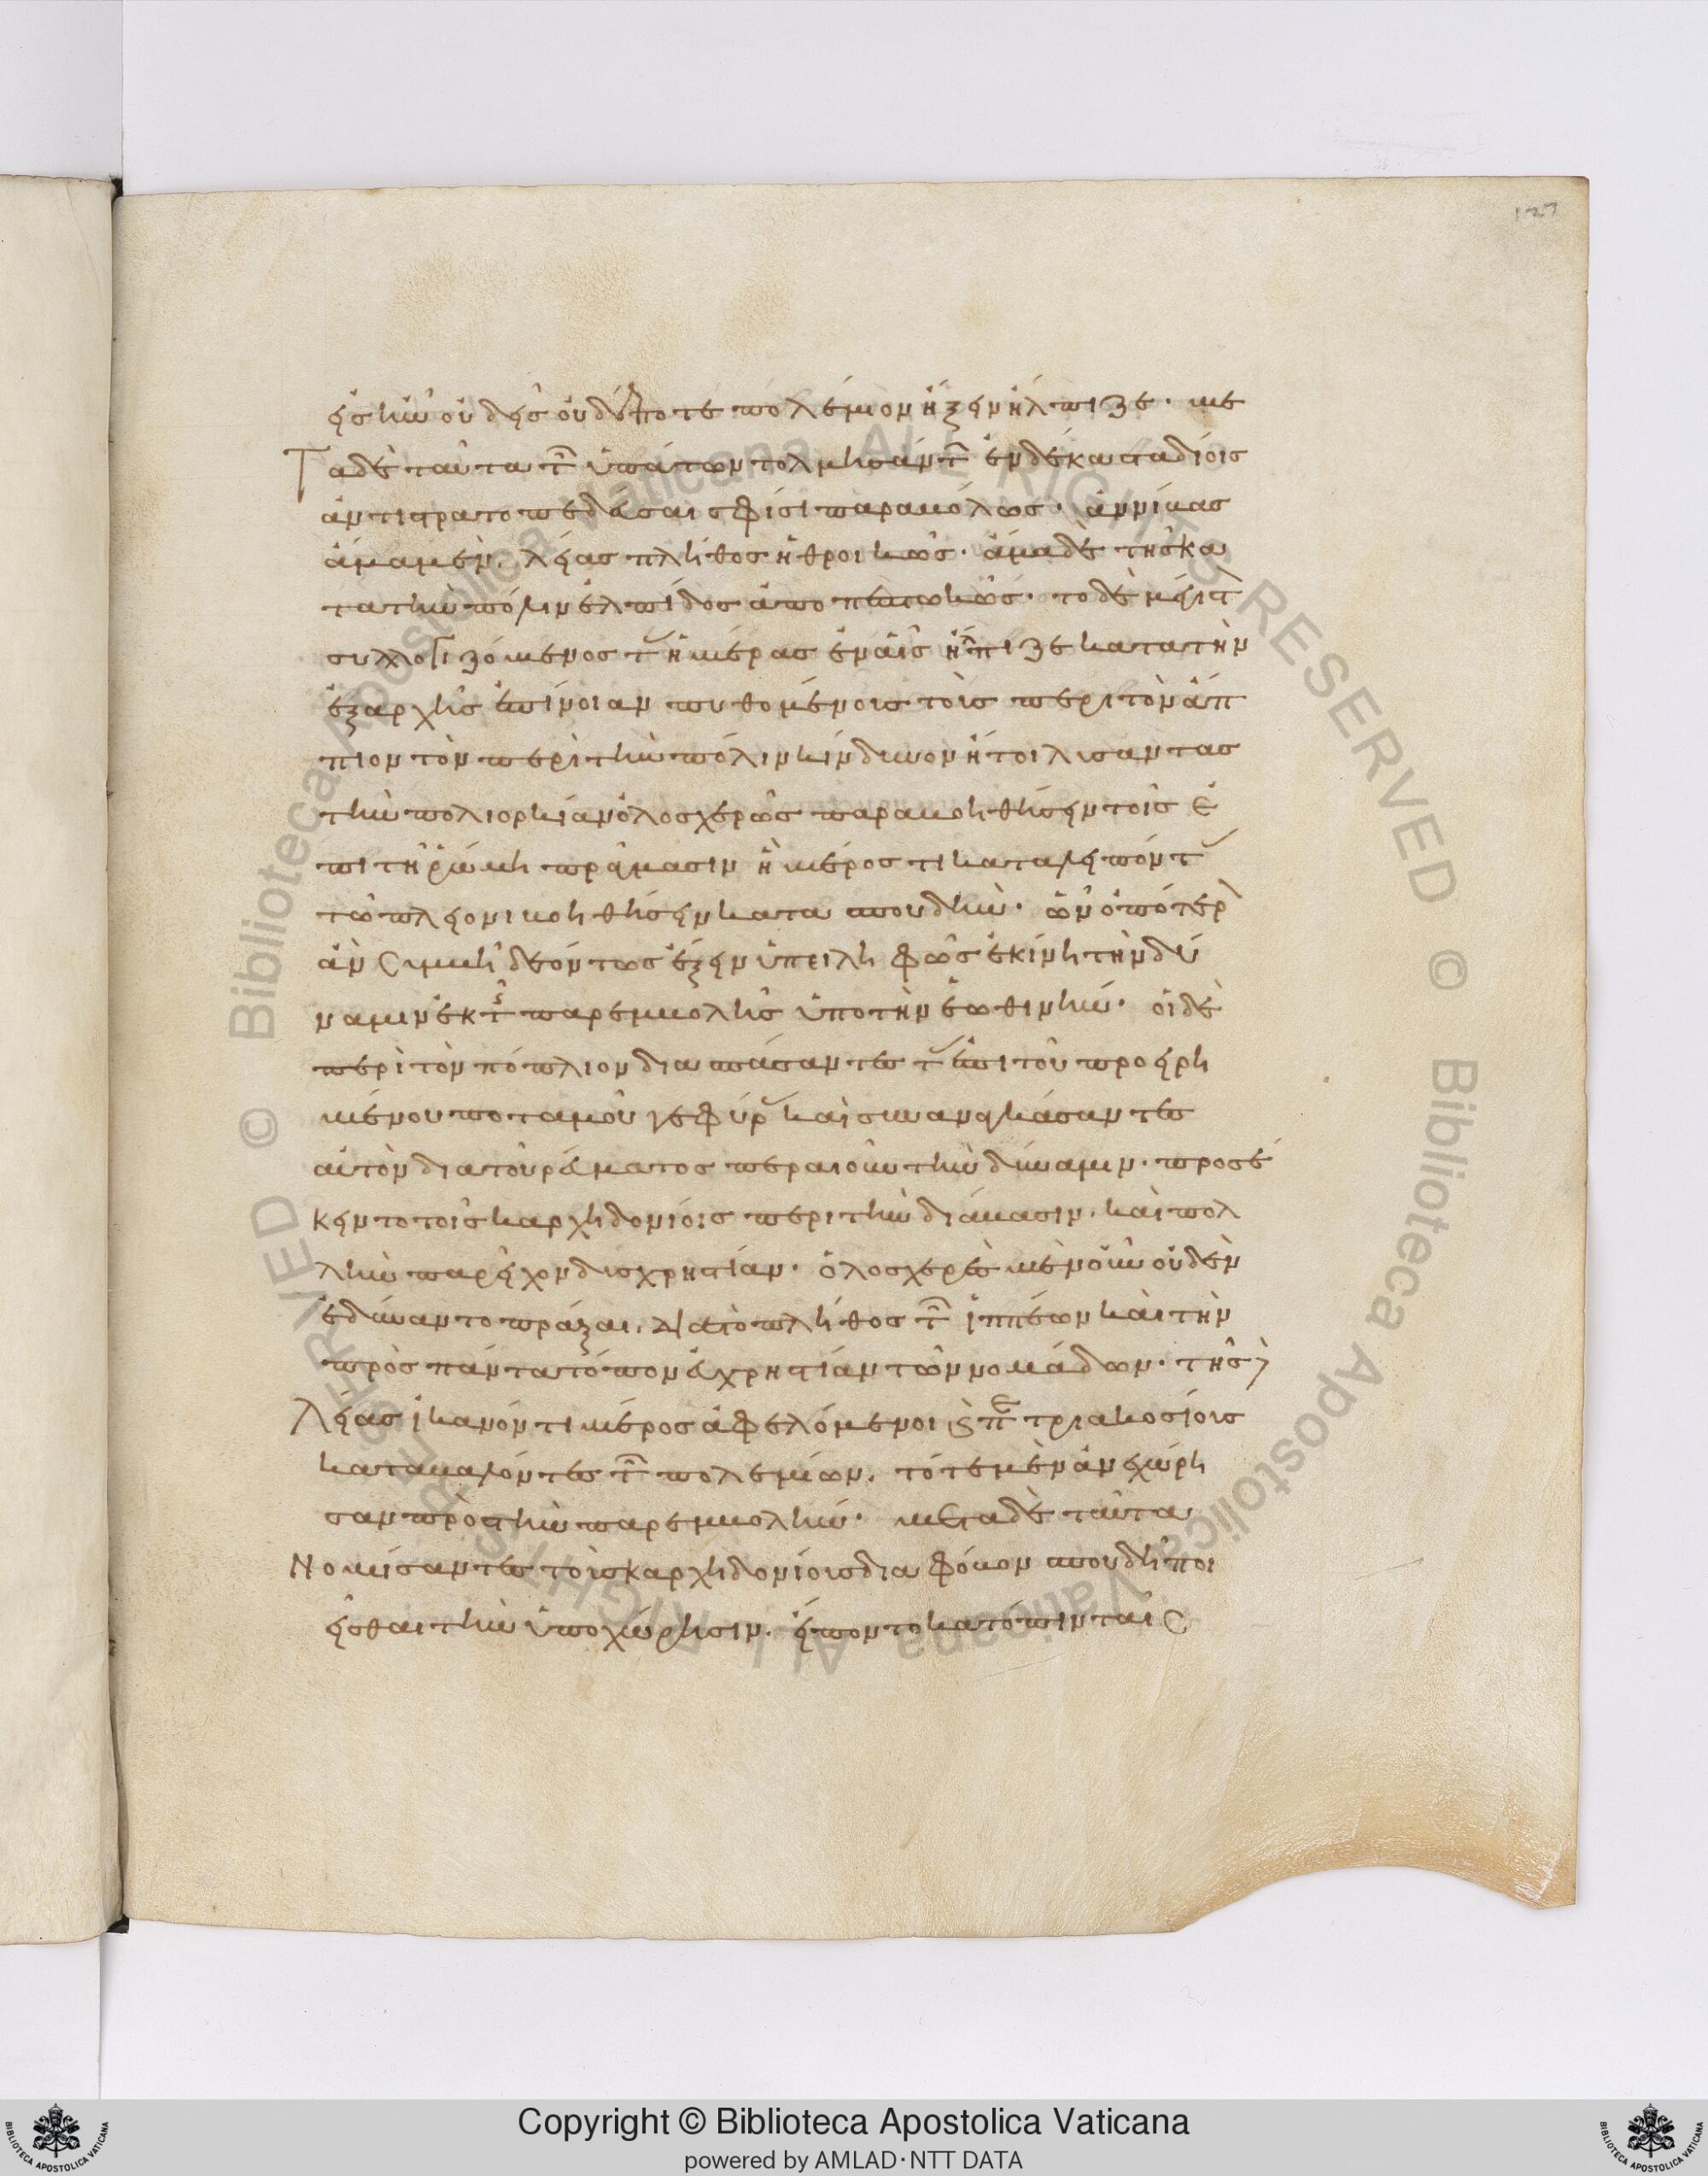 127
εἰς ἣν οὐδεὶς οὐδέποτε πολέμιον ἥξειν ἤλπιζε· με
Τὰ δὲ ταῦτα τῶν ὑπάτων τολμησάντων ἐν δέκα σταδίοις
ἀντιστρατοπεδεῦσαι σφίσι παραβόλως· ἀννίβας
ἅμα μὲν λείας πλῆθος ἠθροικὼς· ἅμα δὲ τῆς κα
τὰ τὴν πόλιν ἐλπίδος ἀποπεπτωκὼς· τὸ δὲ μέγιστον
συλλογιζόμενος τὰς ἡμέρας ἐν αἷς ἤλπιζε κατὰ τὴν
ἐξ ἀρχῆς ἐπίνοιαν πυθομένοις τοῖς περὶ τὸν ἄπ
πιον τὸν περὶ τὴν πόλιν κίνδυνον ἤτοι λύσαντας
τὴν πολιορκίαν ὁλοσχερῶς παραβοηθήσειν τοῖς ἐ
πὶ τῇ ῥώμῃ πράγμασιν ἢ μέρος τι καταλειπόντας
τῷ πλείονι βοηθήσειν κατὰ σπουδήν· ὧν ὁπότερον
ἂν συμβῇ δεόντως ἕξειν ὑπειληφὼς ἐκίνη τὴν δύ
ναμιν ἐκ τῆς παρεμβολῆς ὑπὸ τὴν ἑωθινήν· οἱ δὲ
περὶ τὸν πόπλιον διασπάσαντες τὰς ἐπὶ τοῦ προειρη
μένου ποταμοῦ γεφύρας καὶ συναναγκάσαντες
αὐτὸν διὰ τοῦ ῥεύματος περαιοῦν τὴν δύναμιν· προσέ
κειντο τοῖς καρχηδονίοις περὶ τὴν διάβασιν· καὶ πολ
λὴν παρεῖχον δυσχρηστίαν· ὁλοσχερὲς μὲν οὖν οὐδὲν
ἐδύναντο πρᾶξαι, διὰ τὸ πλῆθος τῶν ἱππέων καὶ τὴν
πρὸς πάντα τόπον εὐχρηστίαν τῶν νομάδων· τῆς δὲ
Λείας ἱκανόν τι μέρος ἀφελόμενοι καὶ περὶ τριακοσίους
καταβαλόντες τῶν πολεμίων, τότε μὲν ἀνεχώρη
σαν πρὸς τὴν παρεμβολήν· μετὰ δὲ ταῦτα
Νομίσαντες τοὺς καρχηδονίους διὰ φόβον σπουδῇ ποι
εῖσθαι τὴν ὑποχώρησιν, εἵποντο κατόπιν ταῖς
Copyright © Biblioteca Apostolica Vaticana
powered by AMLAD·NTT DATA